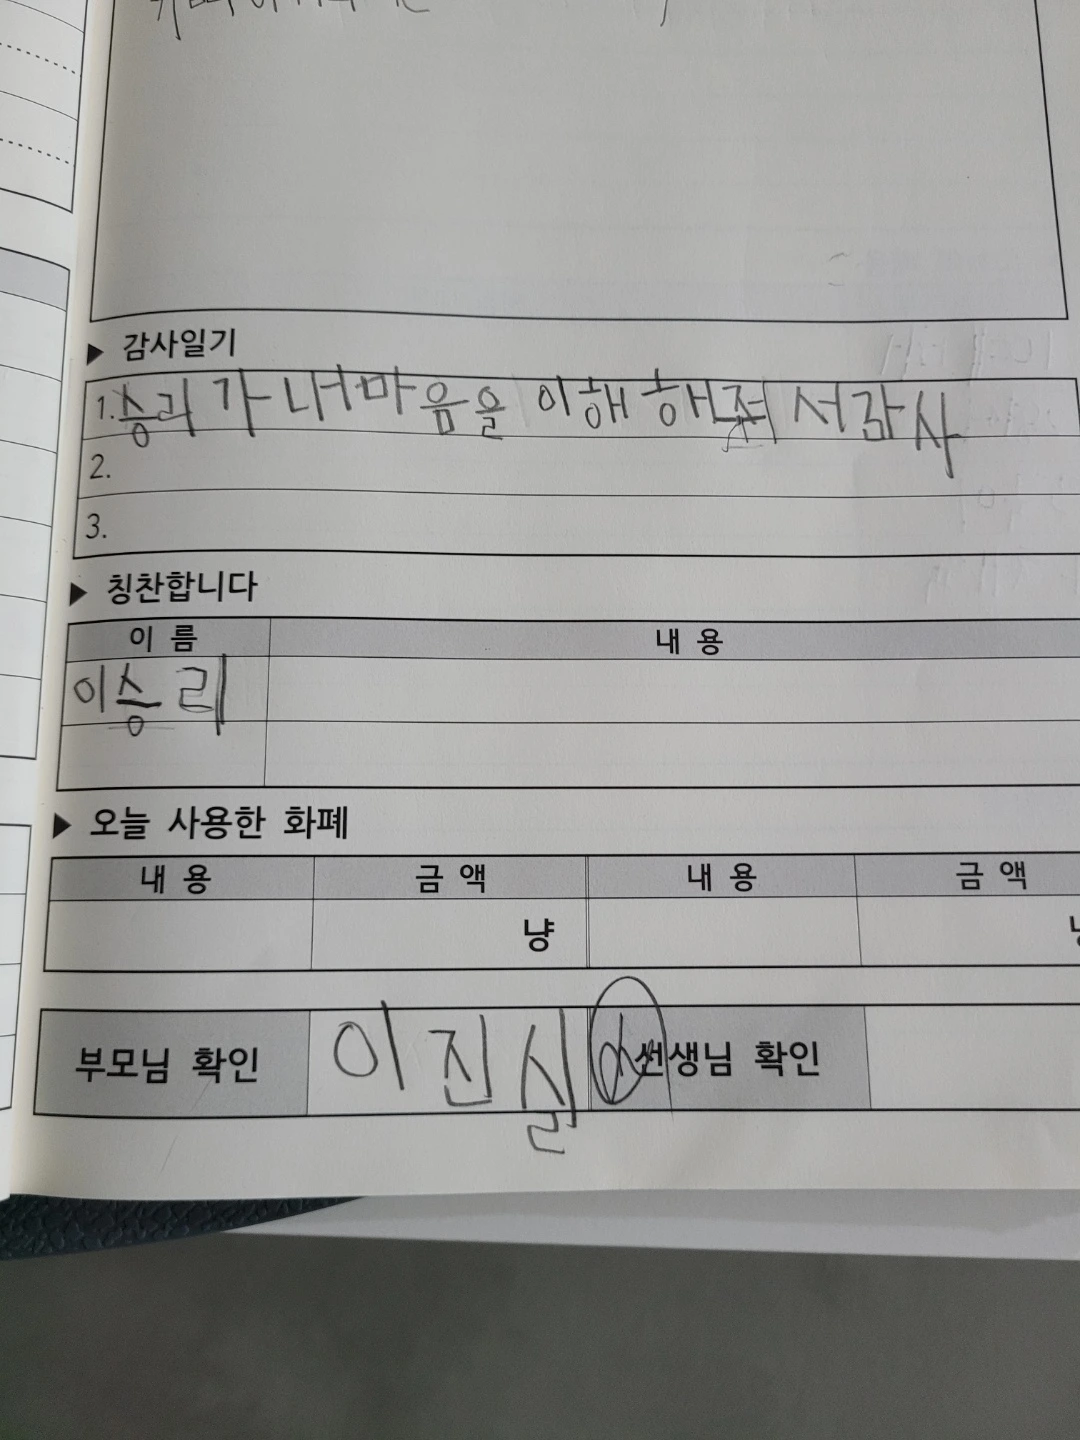 ▶ 감사일기
1. 승리가 내 마음을 이해해줘서 감사
2.
3.
▶ 칭찬합니다
이 름 내 용
이승리
▶ 오늘 사용한 화폐
내 용 금 액 내 용 금 액
냥
부모님 확인 이진실 선생님 확인